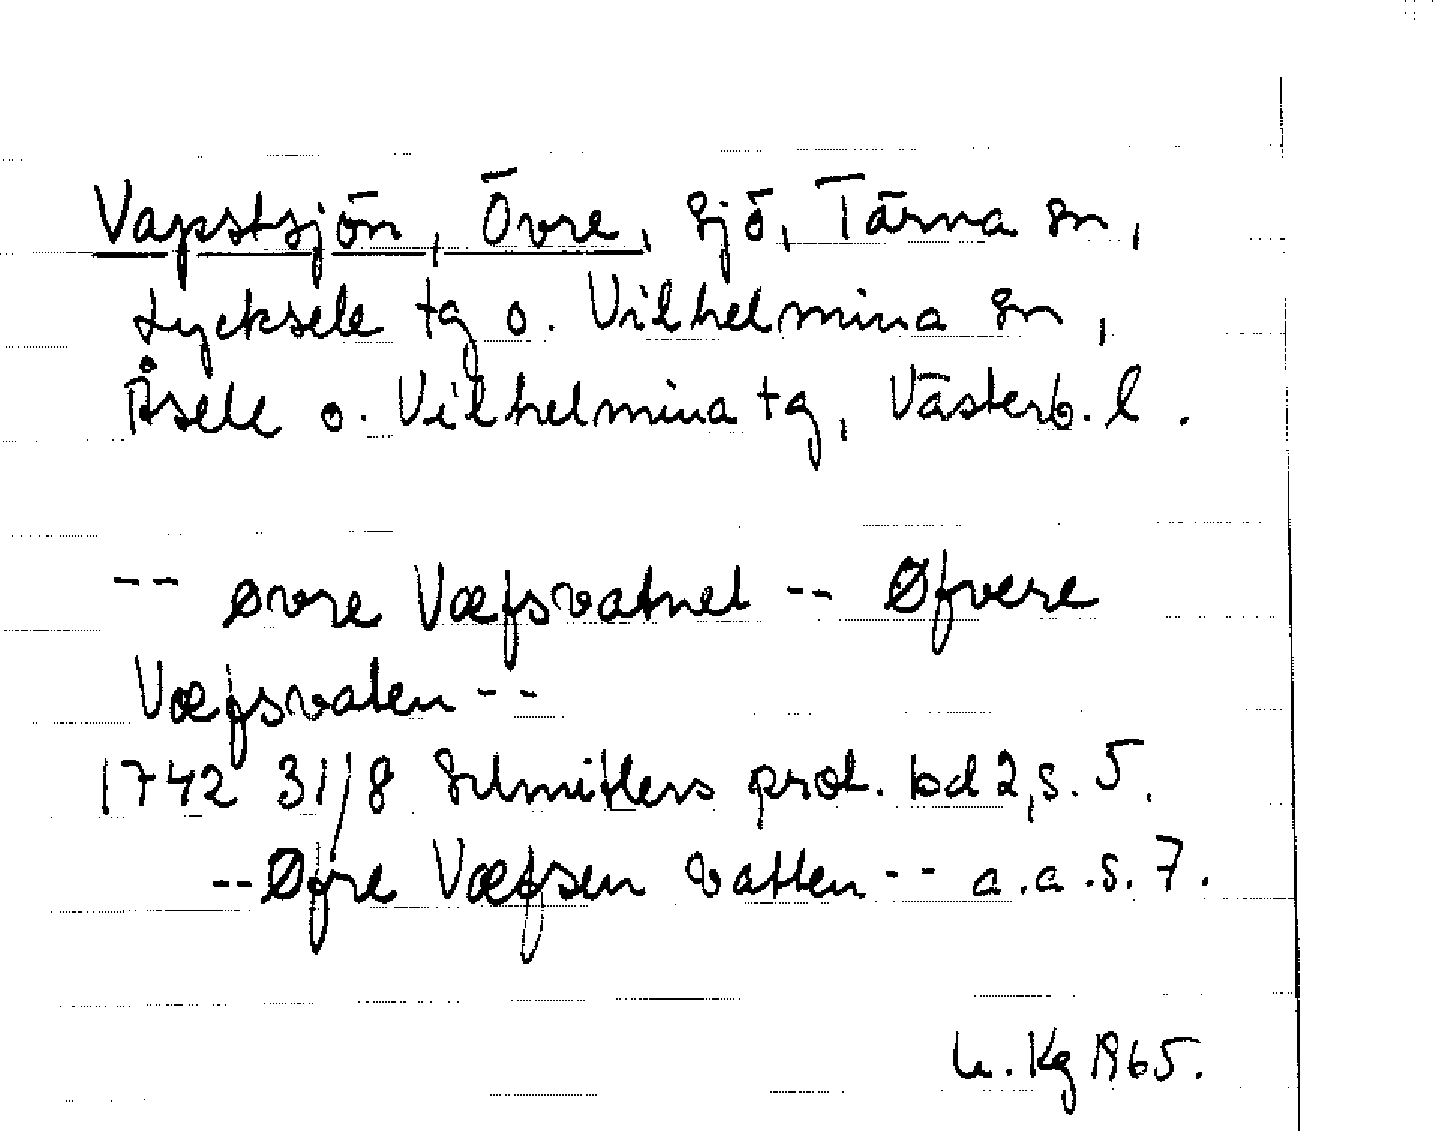 Vapstsjön, Övre, sjö, Tärna sn,
Lycksele tg o. Vilhelmina sn,
Åsele o. Vilhelmina tg, Västerb. l.
-- øvre Væfsvatnet -- Øfvere
Væfsvaten --
1742 31/8 Schnitlers prot. bd 2, s. 5.
-- Øfre Væfsen vatten -- a.a.s. 7.
Kg 1965.